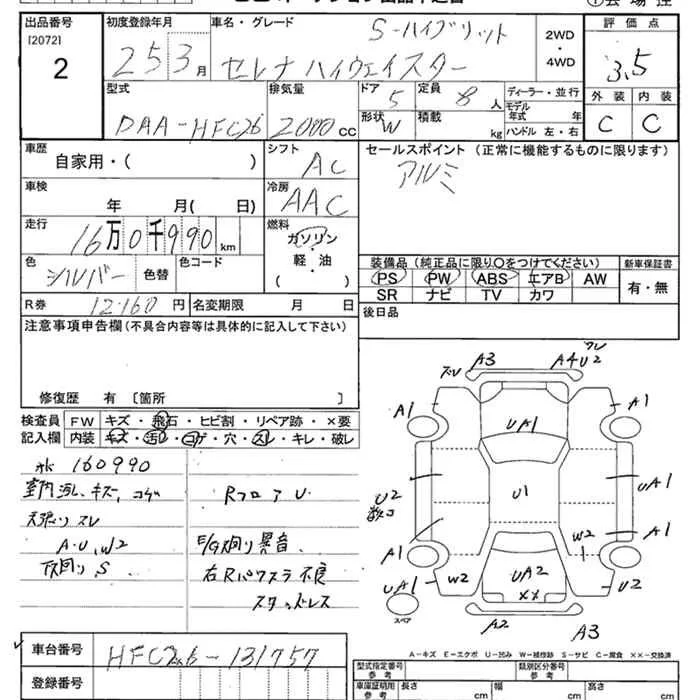 出品番号
[2072]
2
初度登録年月
25 3月
車名・グレード
S-ハイブリット
セレナ ハイウェイスター
2WD
・
4WD
評価点
3.5
型式
DAA-HFC26
排気量
2000 cc
ドア 5
定員 8人
形状 W
積載 kg
ディーラー・並行
モデル年式 年
ハンドル 左・右
外装 内装
C C
車歴
自家用・( )
シフト
AC
車検
年 月( 日)
冷房
AAC
セールスポイント (正常に機能するものに限ります)
アルミ
走行
16万0千990km
燃料
ガソリン
軽・油
( )
色
シルバー
色替
色コード
装備品 (純正品に限り○をつけてください)
PS PW ABS エアB AW
SR ナビ TV カワ
新車保証書
有・無
R券 12.160円
名変期限 月 日
後日品
注意事項申告欄 (不具合内容等は具体的に記入して下さい)
修復歴 有 〔箇所 〕
検査員記入欄
FW キズ・飛石・ヒビ割・リペア跡・×要
内装 キズ・汚レ・コゲ・穴・スレ・キレ・破レ
160990
室内汚レ、キズ、コゲ
天張リ スレ
A・U、W2
下廻り S
RフロアU
E/G廻り 異音
右Rパワスラ不良
スタッドレス
ズレ A3 A4 U2 ズレ
A1 A1
UA1
U2
数コ
U1
UA1
A1
A1
W2
UA1 W2
UA2
××
U2
スペア
A2 A3
車台番号
HFC26-131757
登録番号
A-キズ E-エクボ U-凹み W-補修跡 S-サビ C-腐食 ××-交換済
型式指定番号
参考
類別区分番号
参考
車庫証明用
参考
長さ cm
幅 cm
高さ cm